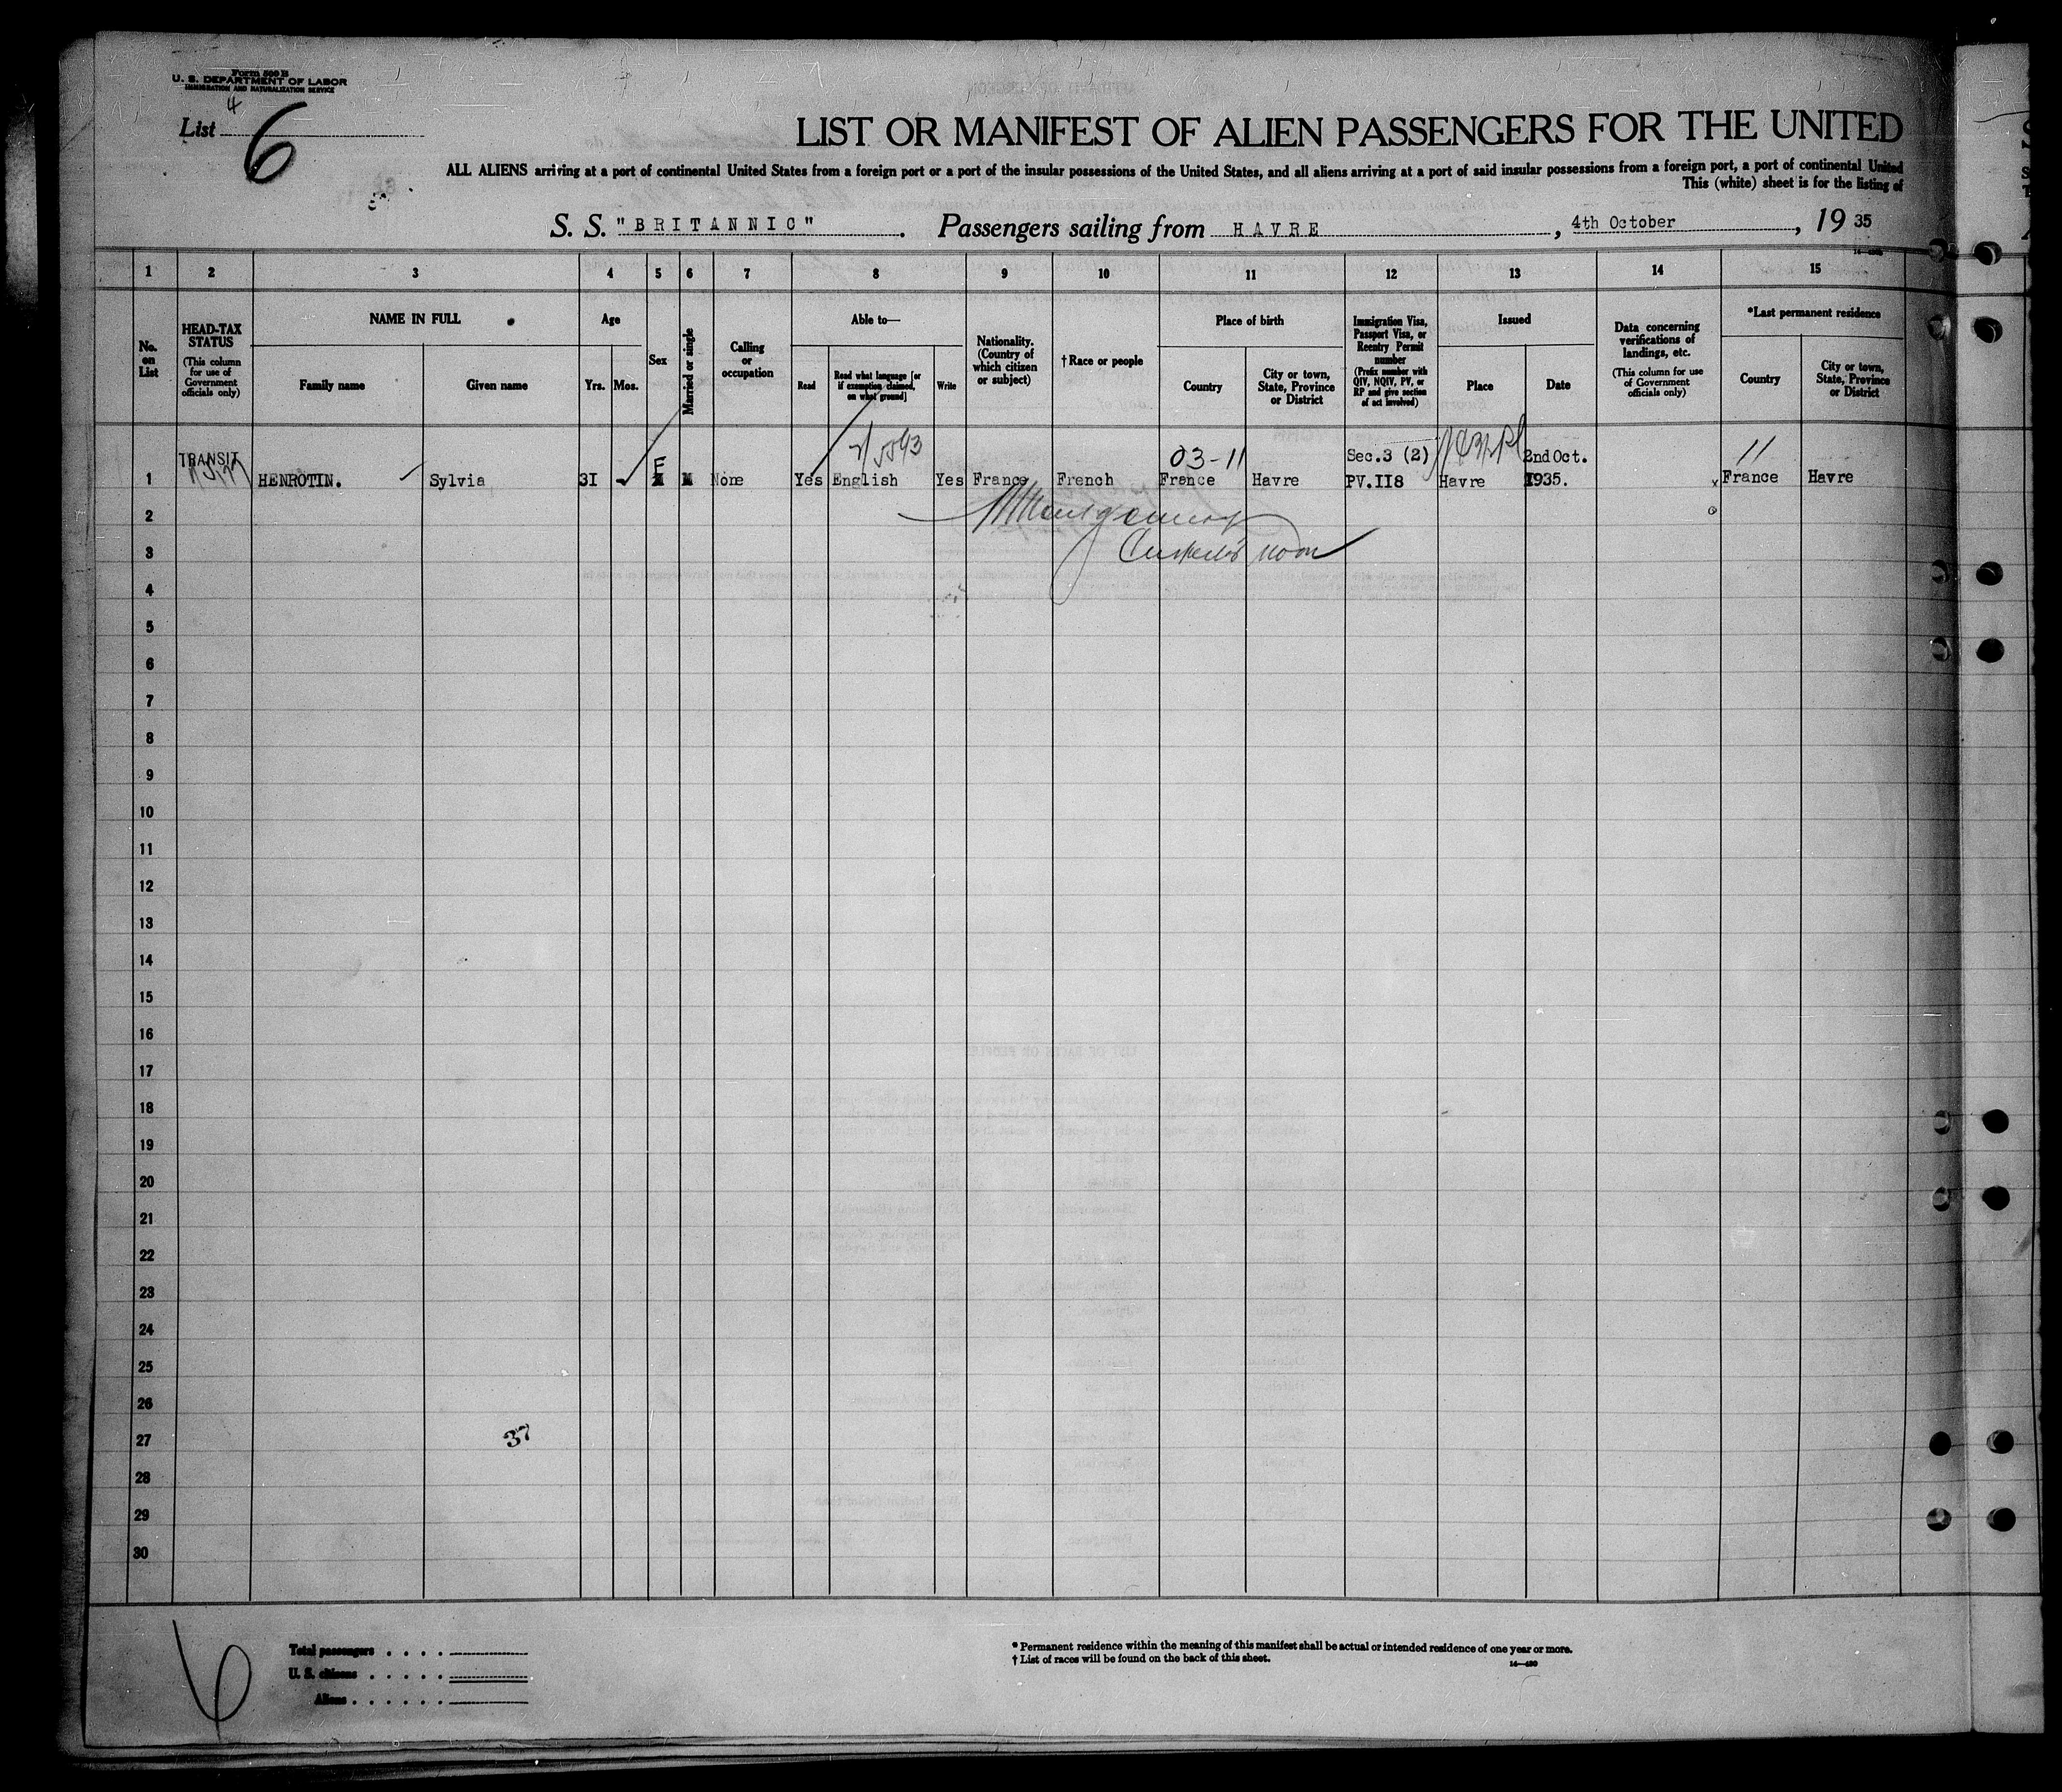 Form 500 B
U. S. DEPARTMENT OF LABOR
IMMIGRATION AND NATURALIZATION SERVICE
4
List 6
LIST OR MANIFEST OF ALIEN PASSENGERS FOR THE UNITED
ALL ALIENS arriving at a port of continental United States from a foreign port or a port of the insular possessions of the United States, and all aliens arriving at a port of said insular possessions from a foreign port, a port of continental United
This (white) sheet is for the listing of
S. S. "BRITANNIC". Passengers sailing from HAVRE, 4th October, 19 35
1 2 3 4 5 6 7 8 9 10 11 12 13 14 15
No. on List
HEAD-TAX STATUS (This column for use of Government officials only)
NAME IN FULL
Family name
Given name
Age
Yrs.
Mos.
Sex
Married or single
Calling or occupation
Able to—
Read
Read what language [or if exemption claimed, on what ground]
Write
Nationality. (Country of which citizen or subject)
† Race or people
Place of birth
Country
City or town, State, Province or District
Immigration Visa, Passport Visa, or Reentry Permit number (Prefix number with QIV, NQIV, PV, or RP and give section of act involved)
Issued
Place
Date
Data concerning verifications of landings, etc. (This column for use of Government officials only)
*Last permanent residence
Country
City or town, State, Province or District
TRANSIT 03-11 Sec.3 (2) 2nd Oct. 11
1 HENROTIN. Sylvia 3I F M None Yes English Yes France French France Havre PV.II8 Havre 1935. x France Havre
2
3
4
5
6
7
8
9
10
11
12
13
14
15
16
17
18
19
20
21
22
23
24
25
26
27
28
29
30
37
6
Total passengers . . . .
U. S. citizens . . . . .
Aliens . . . . . .
* Permanent residence within the meaning of this manifest shall be actual or intended residence of one year or more.
† List of races will be found on the back of this sheet.